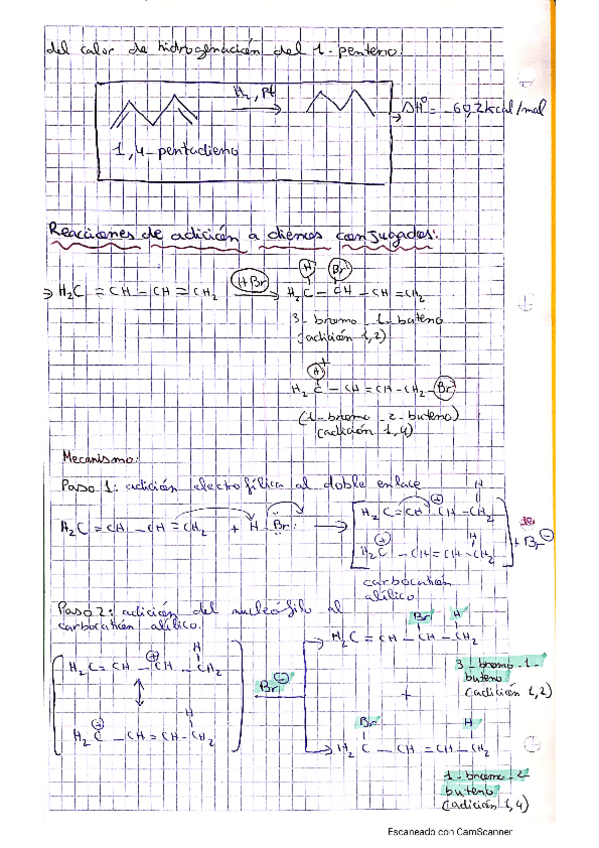 del calor de hidrogenación del 1-penteno.
H₂, Pt
ΔH° = -60,2 kcal/mol
1,4-pentadieno
Reacciones de adición a dienos conjugados:
H₂C = CH - CH = CH₂ HBr H₂C - CH - CH = CH₂
H Br
3-bromo-1-buteno
(adición 1,2)
H
H₂C - CH = CH - CH₂ - Br
(1-bromo-2-buteno)
(adición 1,4)
Mecanismo:
Paso 1: adición electrofílica al doble enlace
H₂C = CH - CH = CH₂ + H - Br:
H
H₂C = CH - CH - CH₂
+
H
H₂C - CH = CH - CH₂
+ Br⊖
carbocatión
alílico
Paso 2: adición del nucleófilo al
carbocatión alílico.
H
H₂C = CH - CH - CH₂
+
H
H₂C - CH = CH - CH₂
+
Br⊖
Br H
H₂C = CH - CH - CH₂
3-bromo-1-
buteno
(adición 1,2)
+
Br H
H₂C - CH = CH - CH₂
1-bromo-2
buteno
(adición 1,4)
Escaneado con CamScanner